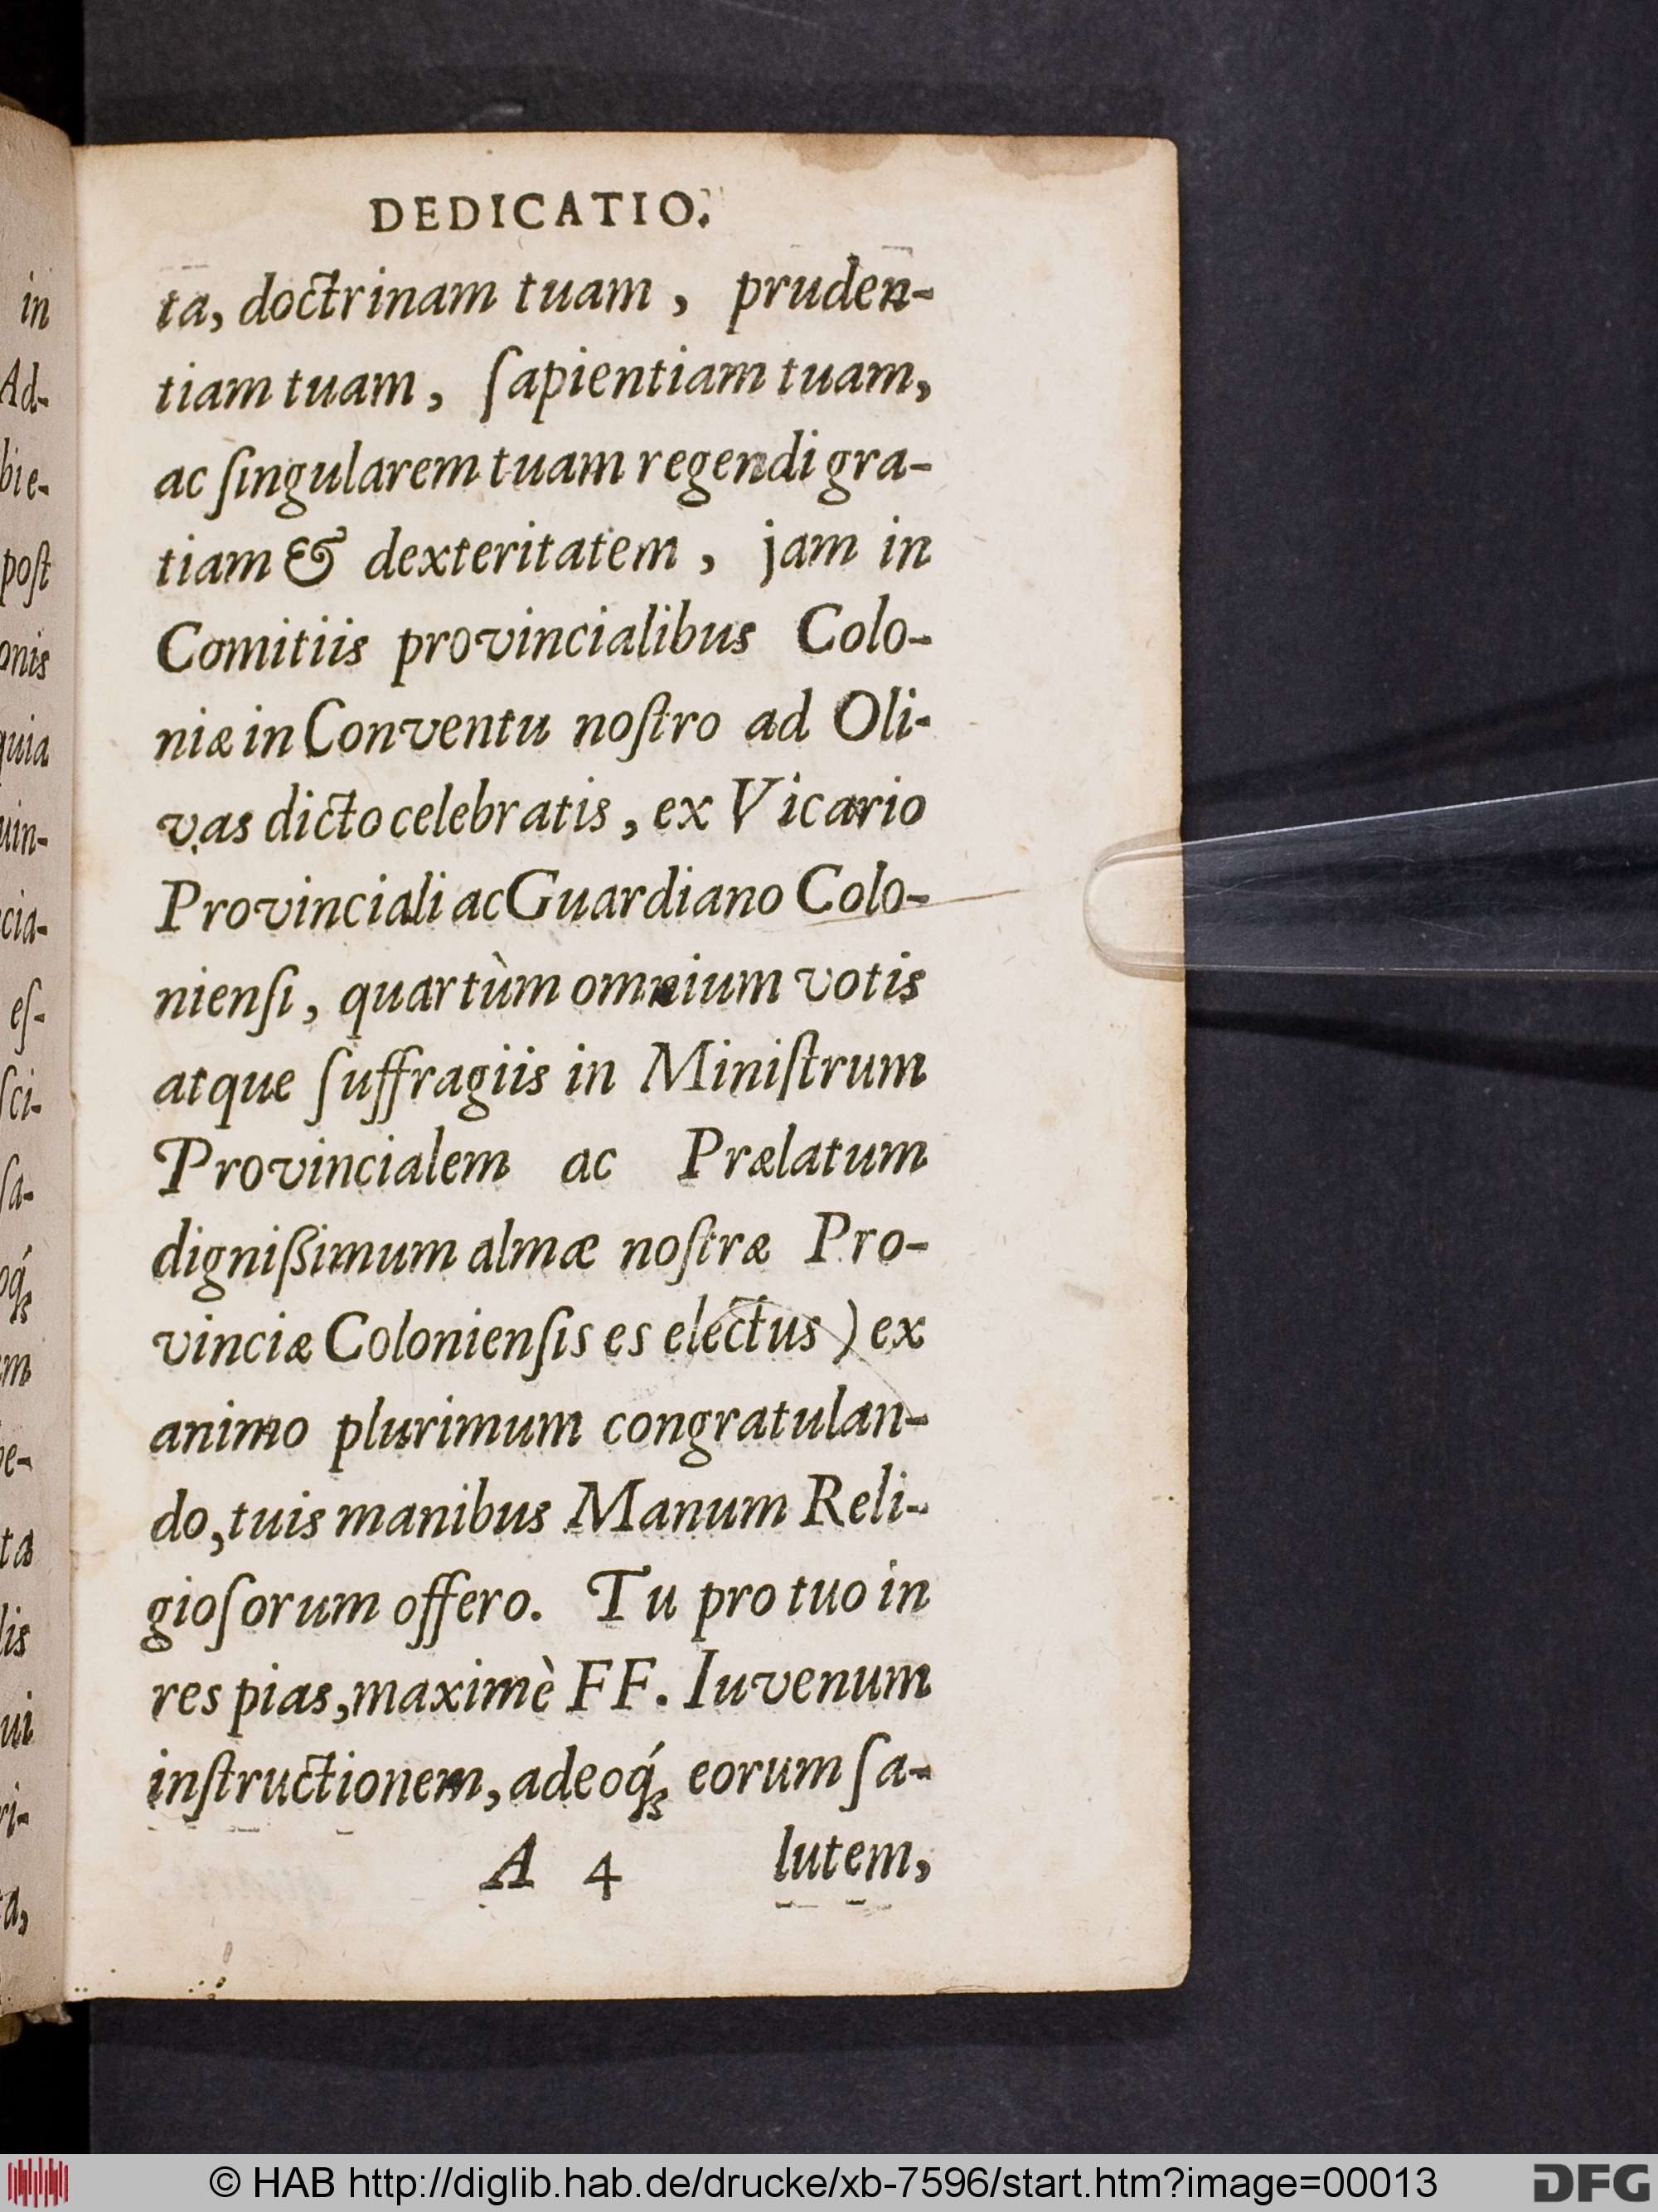 DEDICATIO.
ta, doctrinam tuam, pruden-
tiam tuam, ſapientiam tuam,
ac ſingularem tuam regendi gra-
tiam & dexteritatem, jam in
Comitiis provincialibus Colo-
niæ in Conventu noſtro ad Oli-
vas dicto celebratis, ex Vicario
Provinciali ac Guardiano Colo-
nienſi, quartùm omnium votis
atque ſuffragiis in Miniſtrum
Provincialem ac Prælatum
digniſſimum almæ noſtræ Pro-
vinciæ Colonienſis es electus) ex
animo plurimum congratulan-
do, tuis manibus Manum Reli-
gioſorum offero. Tu pro tuo in
res pias, maximè FF. Iuvenum
inſtructionem, adeoq́ꝫ eorum ſa-
A 4 lutem,
in
Ad-
bie-
poſt
onis
quia
uin-
cia-
eſ-
ſci-
ſa-
oq́ꝫ
m
e-
ta
lis
ui
ri-
a,
© HAB http://diglib.hab.de/drucke/xb-7596/start.htm?image=00013
DFG